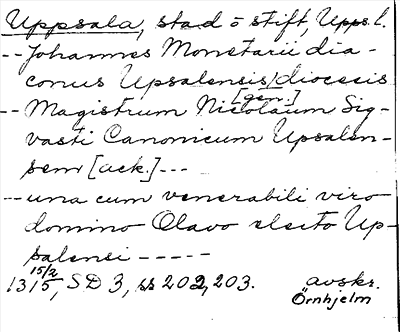 Uppsala, stad o stift, Upps. l.
-- Johannes Monetarii dia-
conus Upsalensis diocesis
[gen.]
-- Magistrum Nicolaum Sig-
vasti Canonicum Upsalen-
sem [ack.] ---
-- una cum venerabili viro
domino Olavo electo Up-
salensi -----
1315 15/2, SD 3, ss 202, 203. avskr.
Örnhjelm